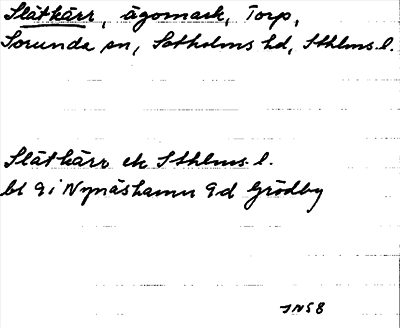 Slätkärr, ägomark, Torp,
Sorunda sn, Sotholms hd, Sthlms. l.
Slätkärr ek Sthlms. l.
bl 9 i Nynäshamn 9d Grödby
JNSB